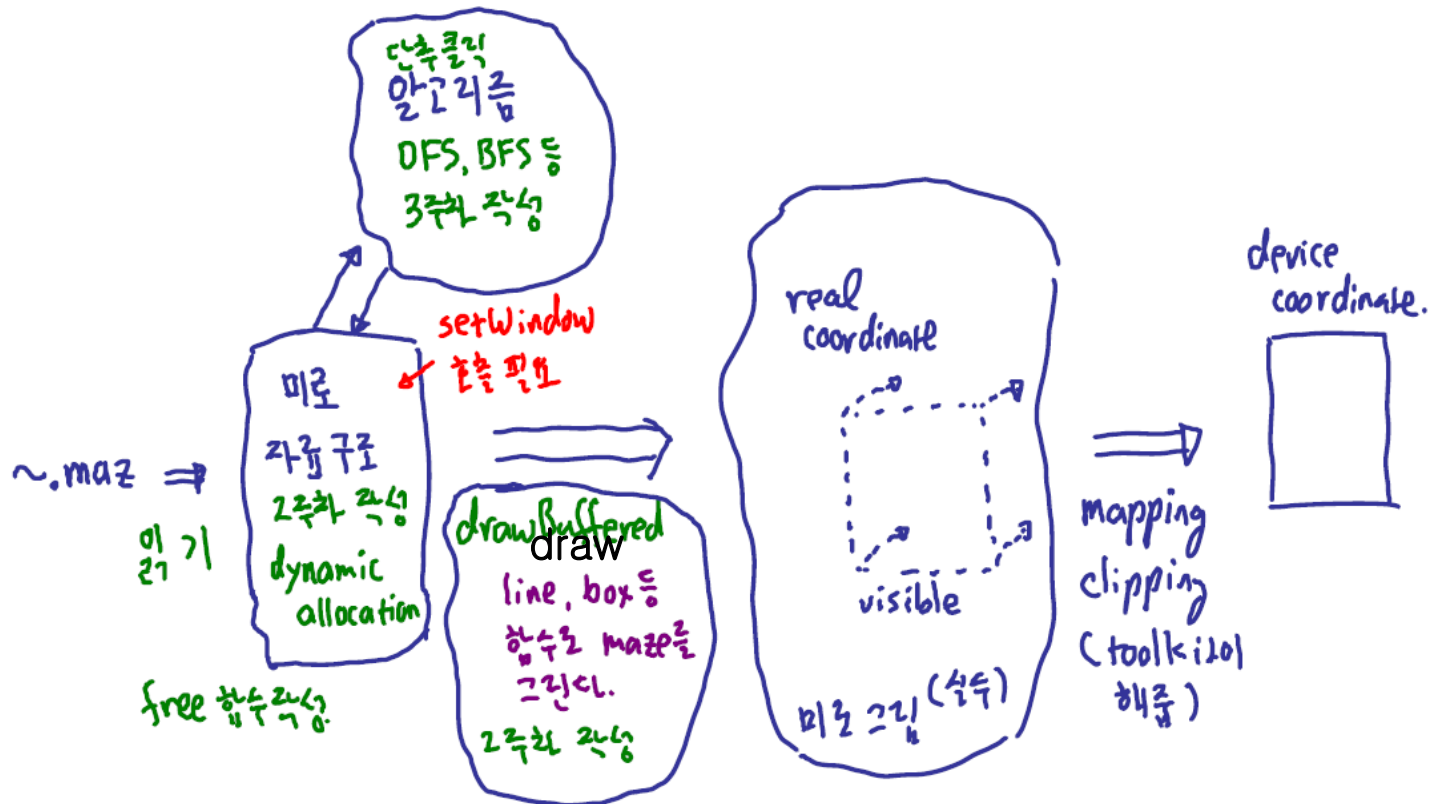 단추클릭
알고리즘
DFS, BFS 등
3주차 작성
setWindow
호출 필요
미로
자료구조
2주차 작성
dynamic
allocation
~.maz
읽기
free 함수작성.
drawBuffered
draw
line, box 등
함수로 maze를
그린다.
2주차 작성
real
coordinate
visible
미로 그림 (실수)
mapping
clipping
(toolkit이
해줌)
device
coordinate.